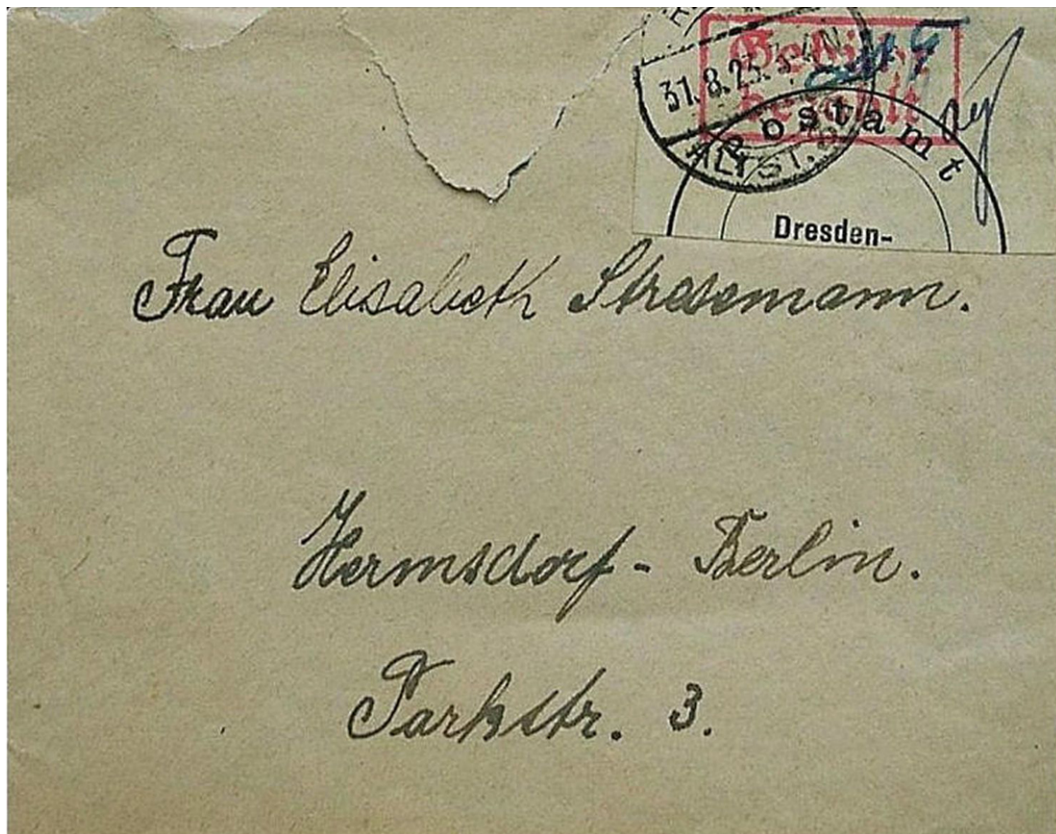 31.8.23. 3-4N.
Gebühr
bezahlt
Postamt
ALTST.
Dresden-
Frau Elisabeth Stresemann.
Hermsdorf - Berlin.
Parkstr. 3.